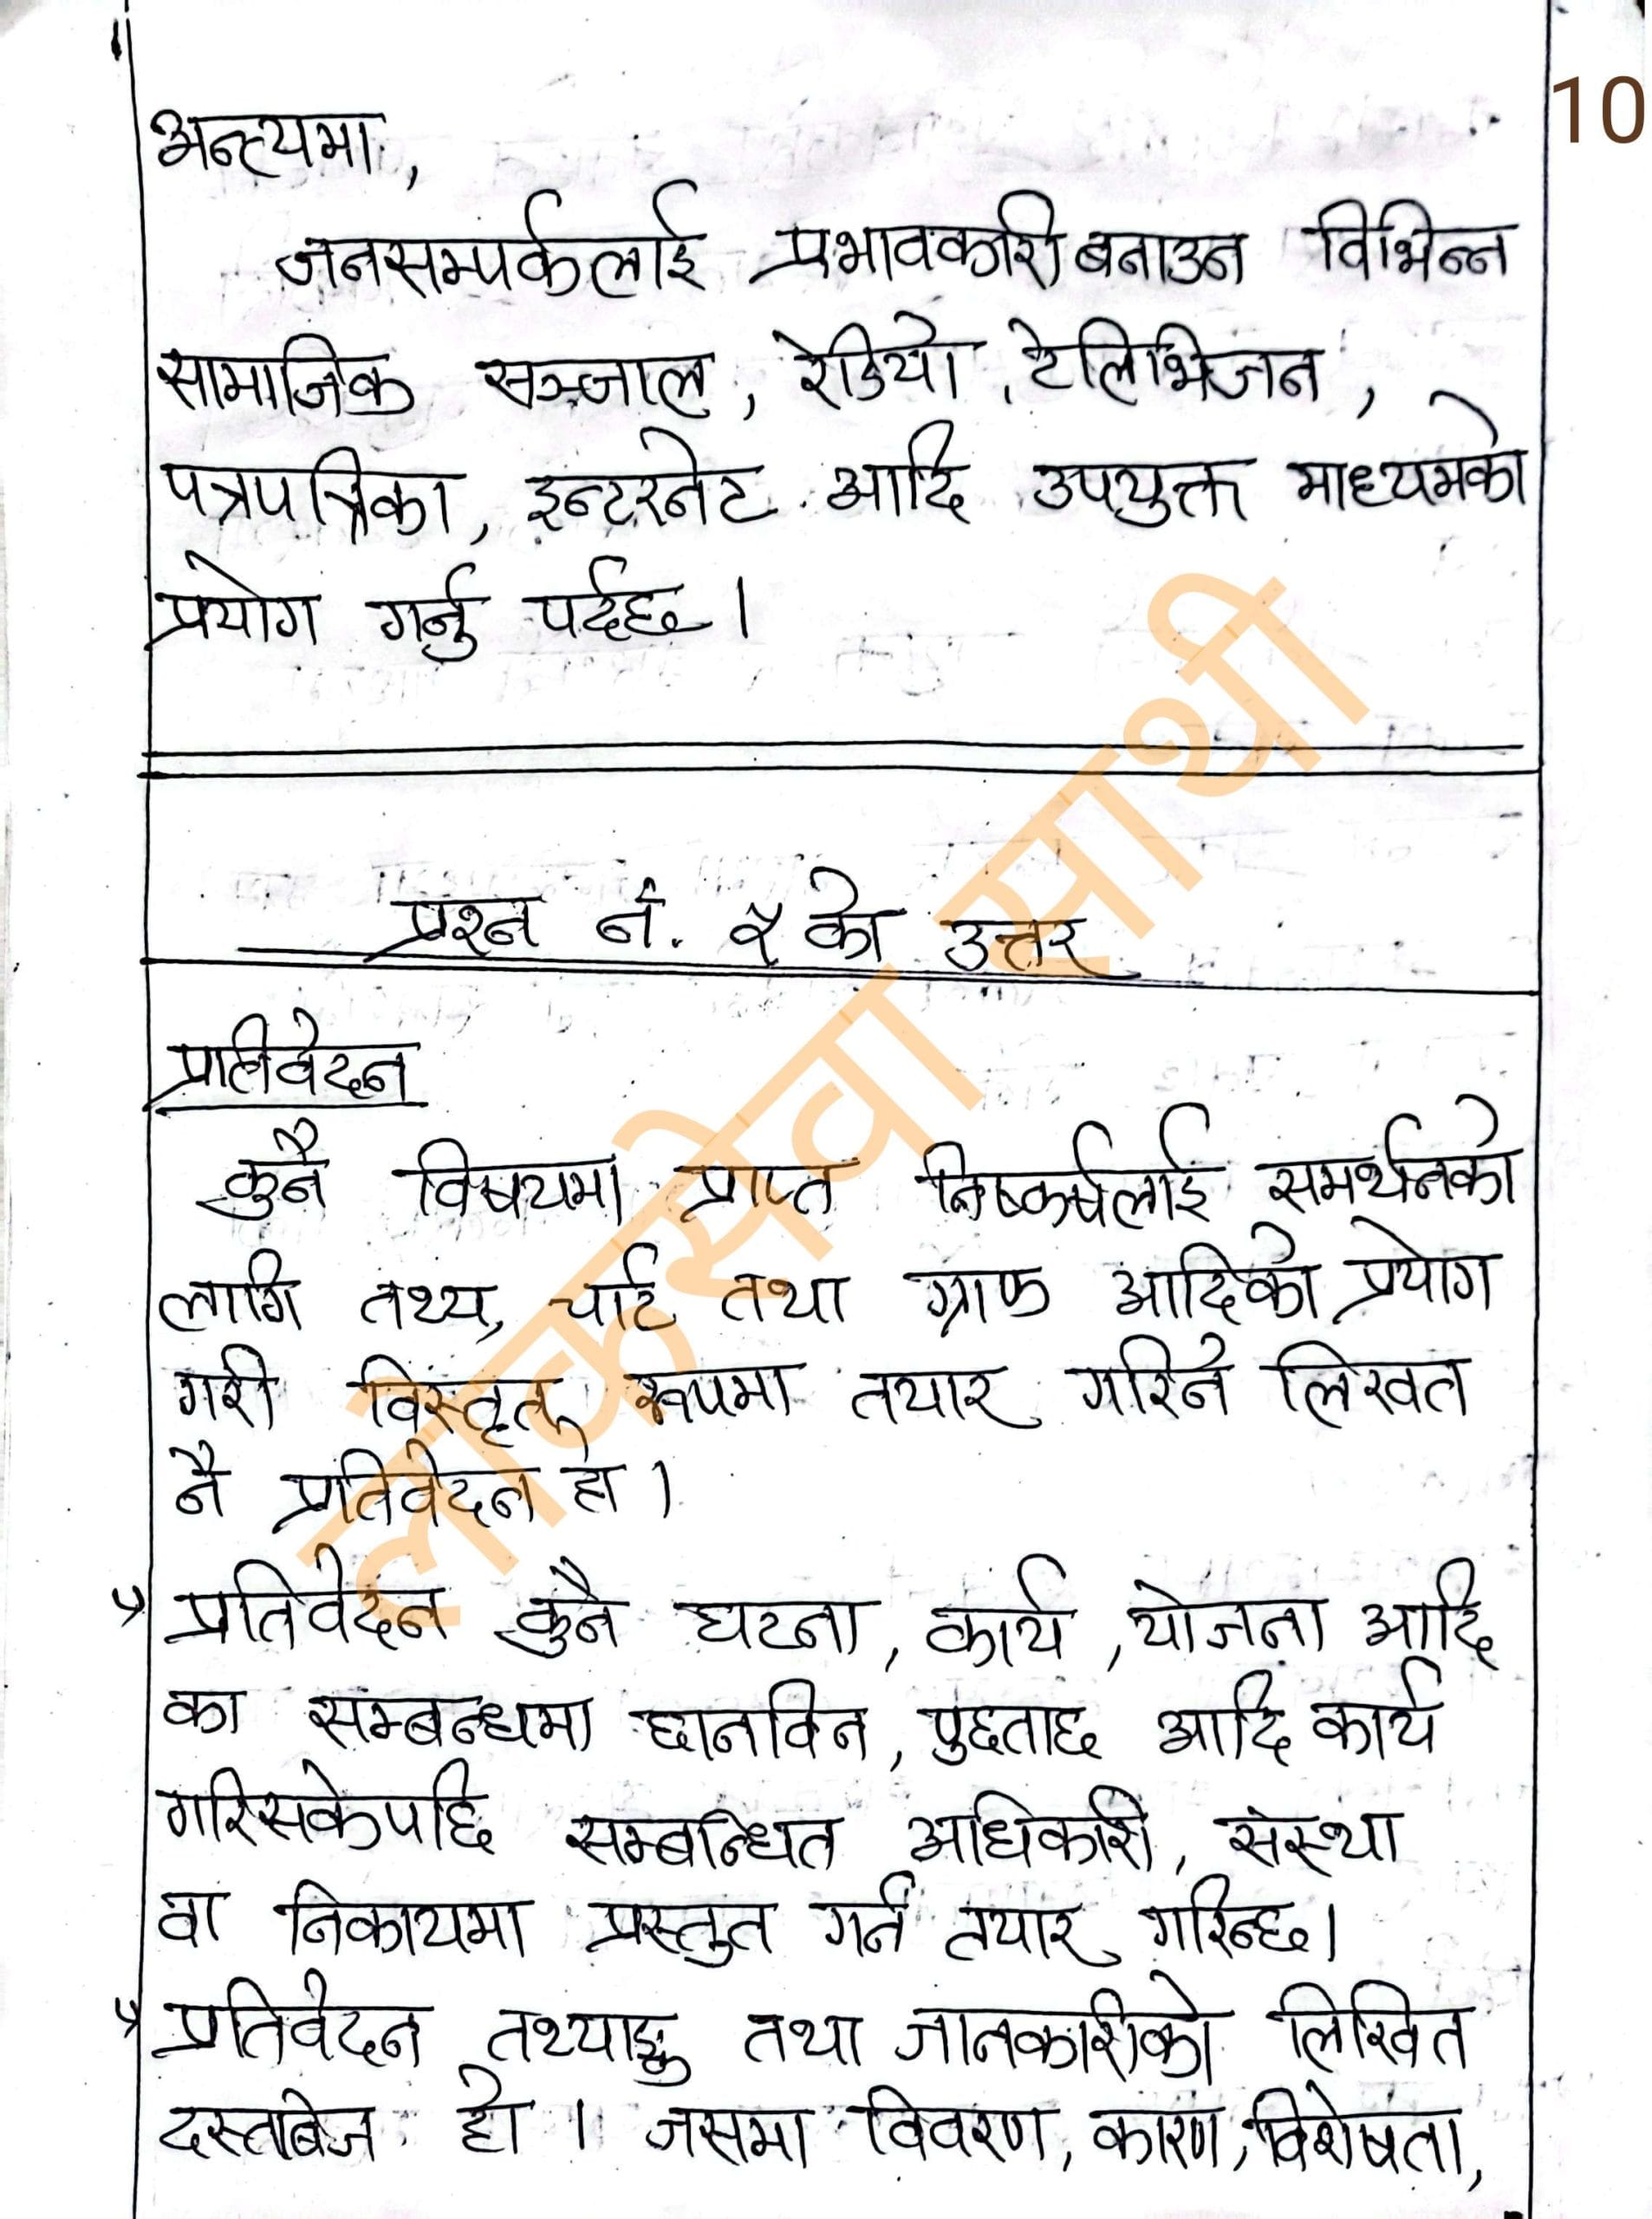 10
अन्त्यमा,
जनसम्पर्कलाई प्रभावकारी बनाउन विभिन्न
सामाजिक सञ्जाल, रेडियो, टेलिभिजन,
पत्रपत्रिका, इन्टरनेट आदि उपयुक्त माध्यमको
प्रयोग गर्नु पर्दछ ।
प्रश्न नं. ५ को उत्तर
प्रतिवेदन
कुनै विषयमा प्राप्त निष्कर्षलाई समर्थनको
लागि तथ्य, चार्ट तथा ग्राफ आदिको प्रयोग
गरी विस्तृत रूपमा तयार गरिने लिखत
नै प्रतिवेदन हो ।
प्रतिवेदन कुनै घटना, कार्य, योजना आदि
का सम्बन्धमा छानविन, पुछताछ आदि कार्य
गरिसकेपछि सम्बन्धित अधिकारी, संस्था
वा निकायमा प्रस्तुत गर्न तयार गरिन्छ।
प्रतिवेदन तथ्याङ्क तथा जानकारीको लिखित
दस्ताबेज हो । जसमा विवरण, कारण, विशेषता,
लोकसेवा साथी